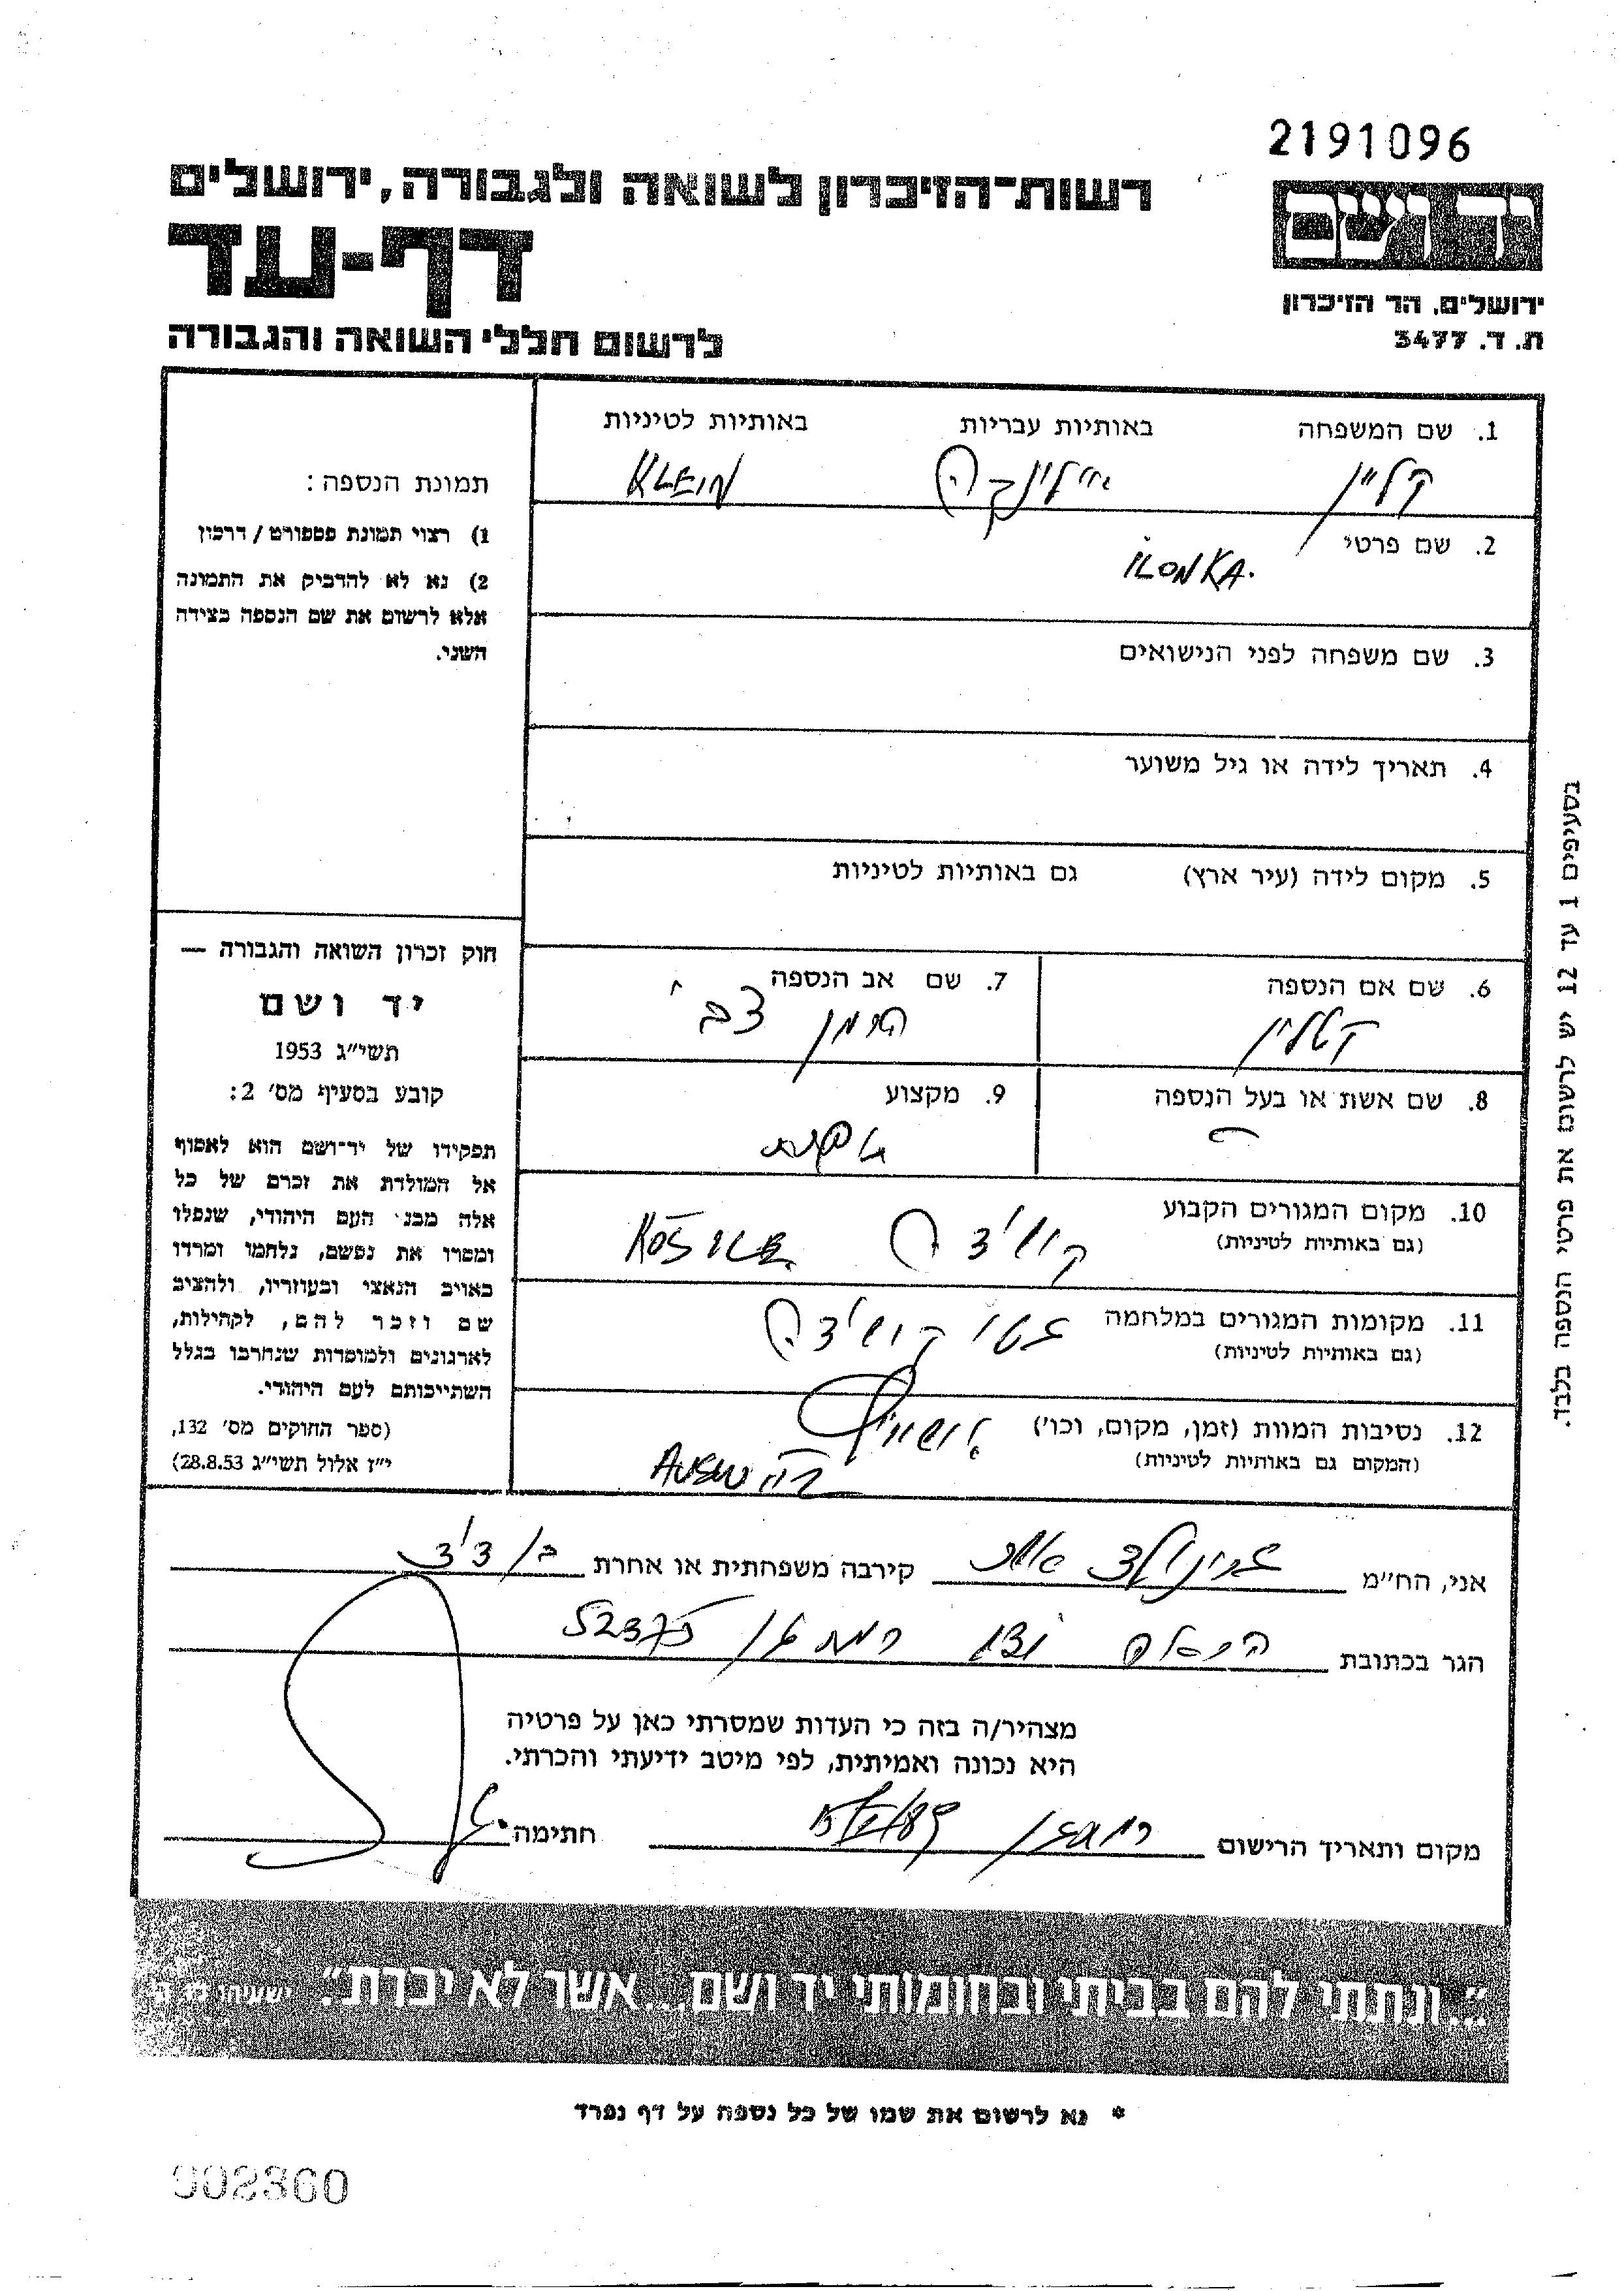 2191096
רשות-הזיכרון לשואה ולגבורה, ירושלים
יד ושם
דף-עד
ירושלים, הר הזיכרון
ת. ד. 3477
לרשום חללי השואה והגבורה
1. שם המשפחה באותיות עבריות באותיות לטיניות
קליין אילונקה KLEIN
2. שם פרטי
ILONKA.
3. שם משפחה לפני הנישואים
4. תאריך לידה או גיל משוער
5. מקום לידה (עיר ארץ) גם באותיות לטיניות
6. שם אם הנספה
קטלין
7. שם אב הנספה
הרמן צבי
8. שם אשת או בעל הנספה
9. מקצוע
10. מקום המגורים הקבוע
(גם באותיות לטיניות)
11. מקומות המגורים במלחמה
(גם באותיות לטיניות)
גטו
12. נסיבות המוות (זמן, מקום, וכו')
(המקום גם באותיות לטיניות)
אושוויץ
תמונת הנספה:
1) רצוי תמונת פספורט / דרכון
2) נא לא להדביק את התמונה
אלא לרשום את שם הנספה בצידה
השני.
חוק זכרון השואה והגבורה —
יד ושם
תשי"ג 1953
קובע בסעיף מס' 2:
תפקידו של יד-ושם הוא לאסוף
אל המולדת את זכרם של כל
אלה מבני העם היהודי, שנפלו
ומסרו את נפשם, נלחמו ומרדו
באויב הנאצי ובעוזריו, ולהציב
שם וזכר להם, לקהילות,
לארגונים ולמוסדות שנחרבו בגלל
השתייכותם לעם היהודי.
(ספר החוקים מס' 132,
י"ז אלול תשי"ג 28.8.53)
בסעיפים 1 עד 12 יש לרשום את פרטי הנספה בלבד.
אני, הח"מ קירבה משפחתית או אחרת
הגר בכתובת רמת גן 52373
מצהיר/ה בזה כי העדות שמסרתי כאן על פרטיה
היא נכונה ואמיתית, לפי מיטב ידיעתי והכרתי.
מקום ותאריך הרישום חתימה
"...ונתתי להם בביתי ובחומותי יד ושם...אשר לא יכרת". ישעיהו נו ה'
* נא לרשום את שמו של כל נספה על דף נפרד
002360